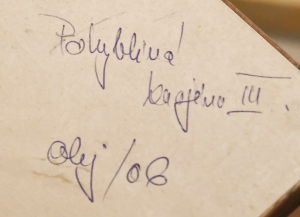 Pohyblivá
krajina III.
olej/06